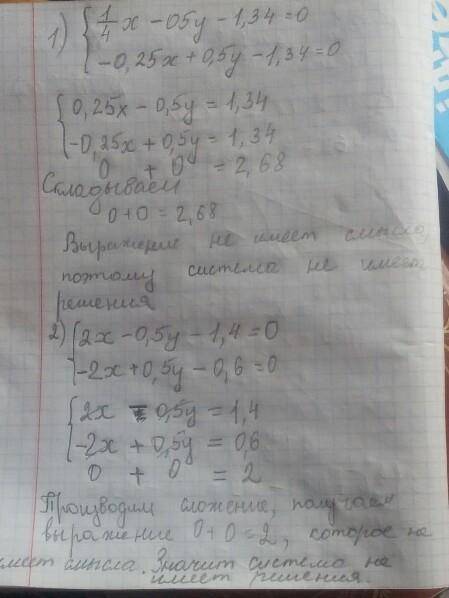 1) { 1/4 x - 05y - 1,34 = 0
-0,25x + 0,5y - 1,34 = 0
{ 0,25x - 0,5y = 1,34
-0,25x + 0,5y = 1,34
0 + 0 = 2,68
Складываем
0+0 = 2,68
Выражение не имеет смысла,
поэтому система не имеет
решения
2) { 2x - 0,5y - 1,4 = 0
-2x + 0,5y - 0,6 = 0
{ 2x - 0,5y = 1,4
-2x + 0,5y = 0,6
0 + 0 = 2
Производим сложение, получаем
выражение 0+0=2, которое не
имеет смысла. Значит система не
имеет решения.